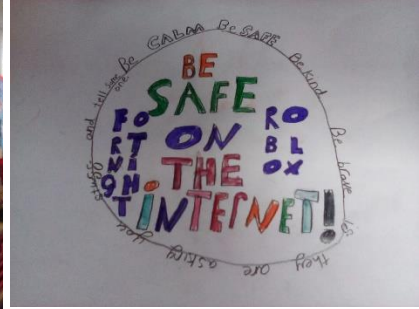 Be CALAA Be SAFE Be kind Be brave if they are asking you
and tell
BE
SAFE
ON
THE
iNTERNET!
FO
RT
NI
9H
T
RO
BL
OX